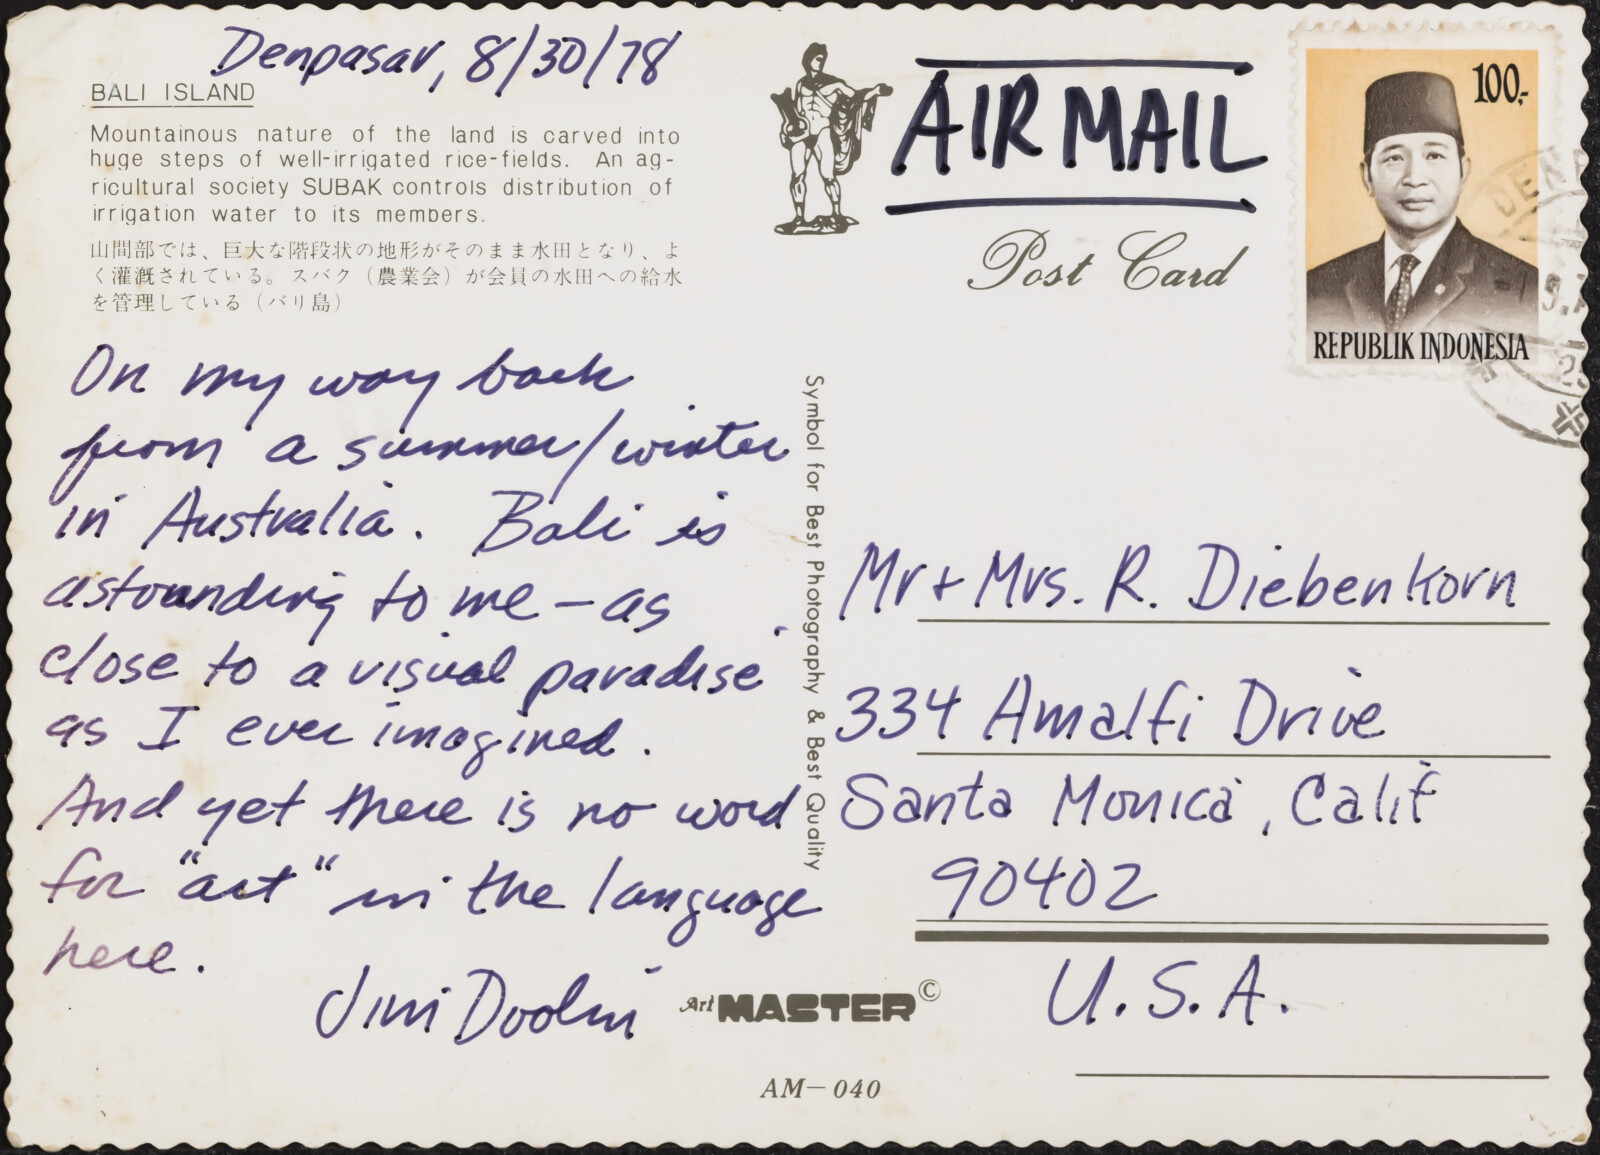 Denpasar, 8/30/78
BALI ISLAND
Mountainous nature of the land is carved into
huge steps of well-irrigated rice-fields. An ag-
ricultural society SUBAK controls distribution of
irrigation water to its members.
山間部では、巨大な階段状の地形がそのまま水田となり、よ
く灌漑されている。スバク（農業会）が会員の水田への給水
を管理している（バリ島）
On my way back
from a summer/winter
in Australia. Bali is
astounding to me – as
close to a visual paradise
as I ever imagined.
And yet there is no word
for "art" in the language
here.
Jim Doolin
Symbol for Best Photography & Best Quality
Art MASTER ©
AM—040
AIR MAIL
Post Card
100,-
REPUBLIK INDONESIA
Mr + Mrs. R. Diebenkorn
334 Amalfi Drive
Santa Monica, Calif
90402
U.S.A.